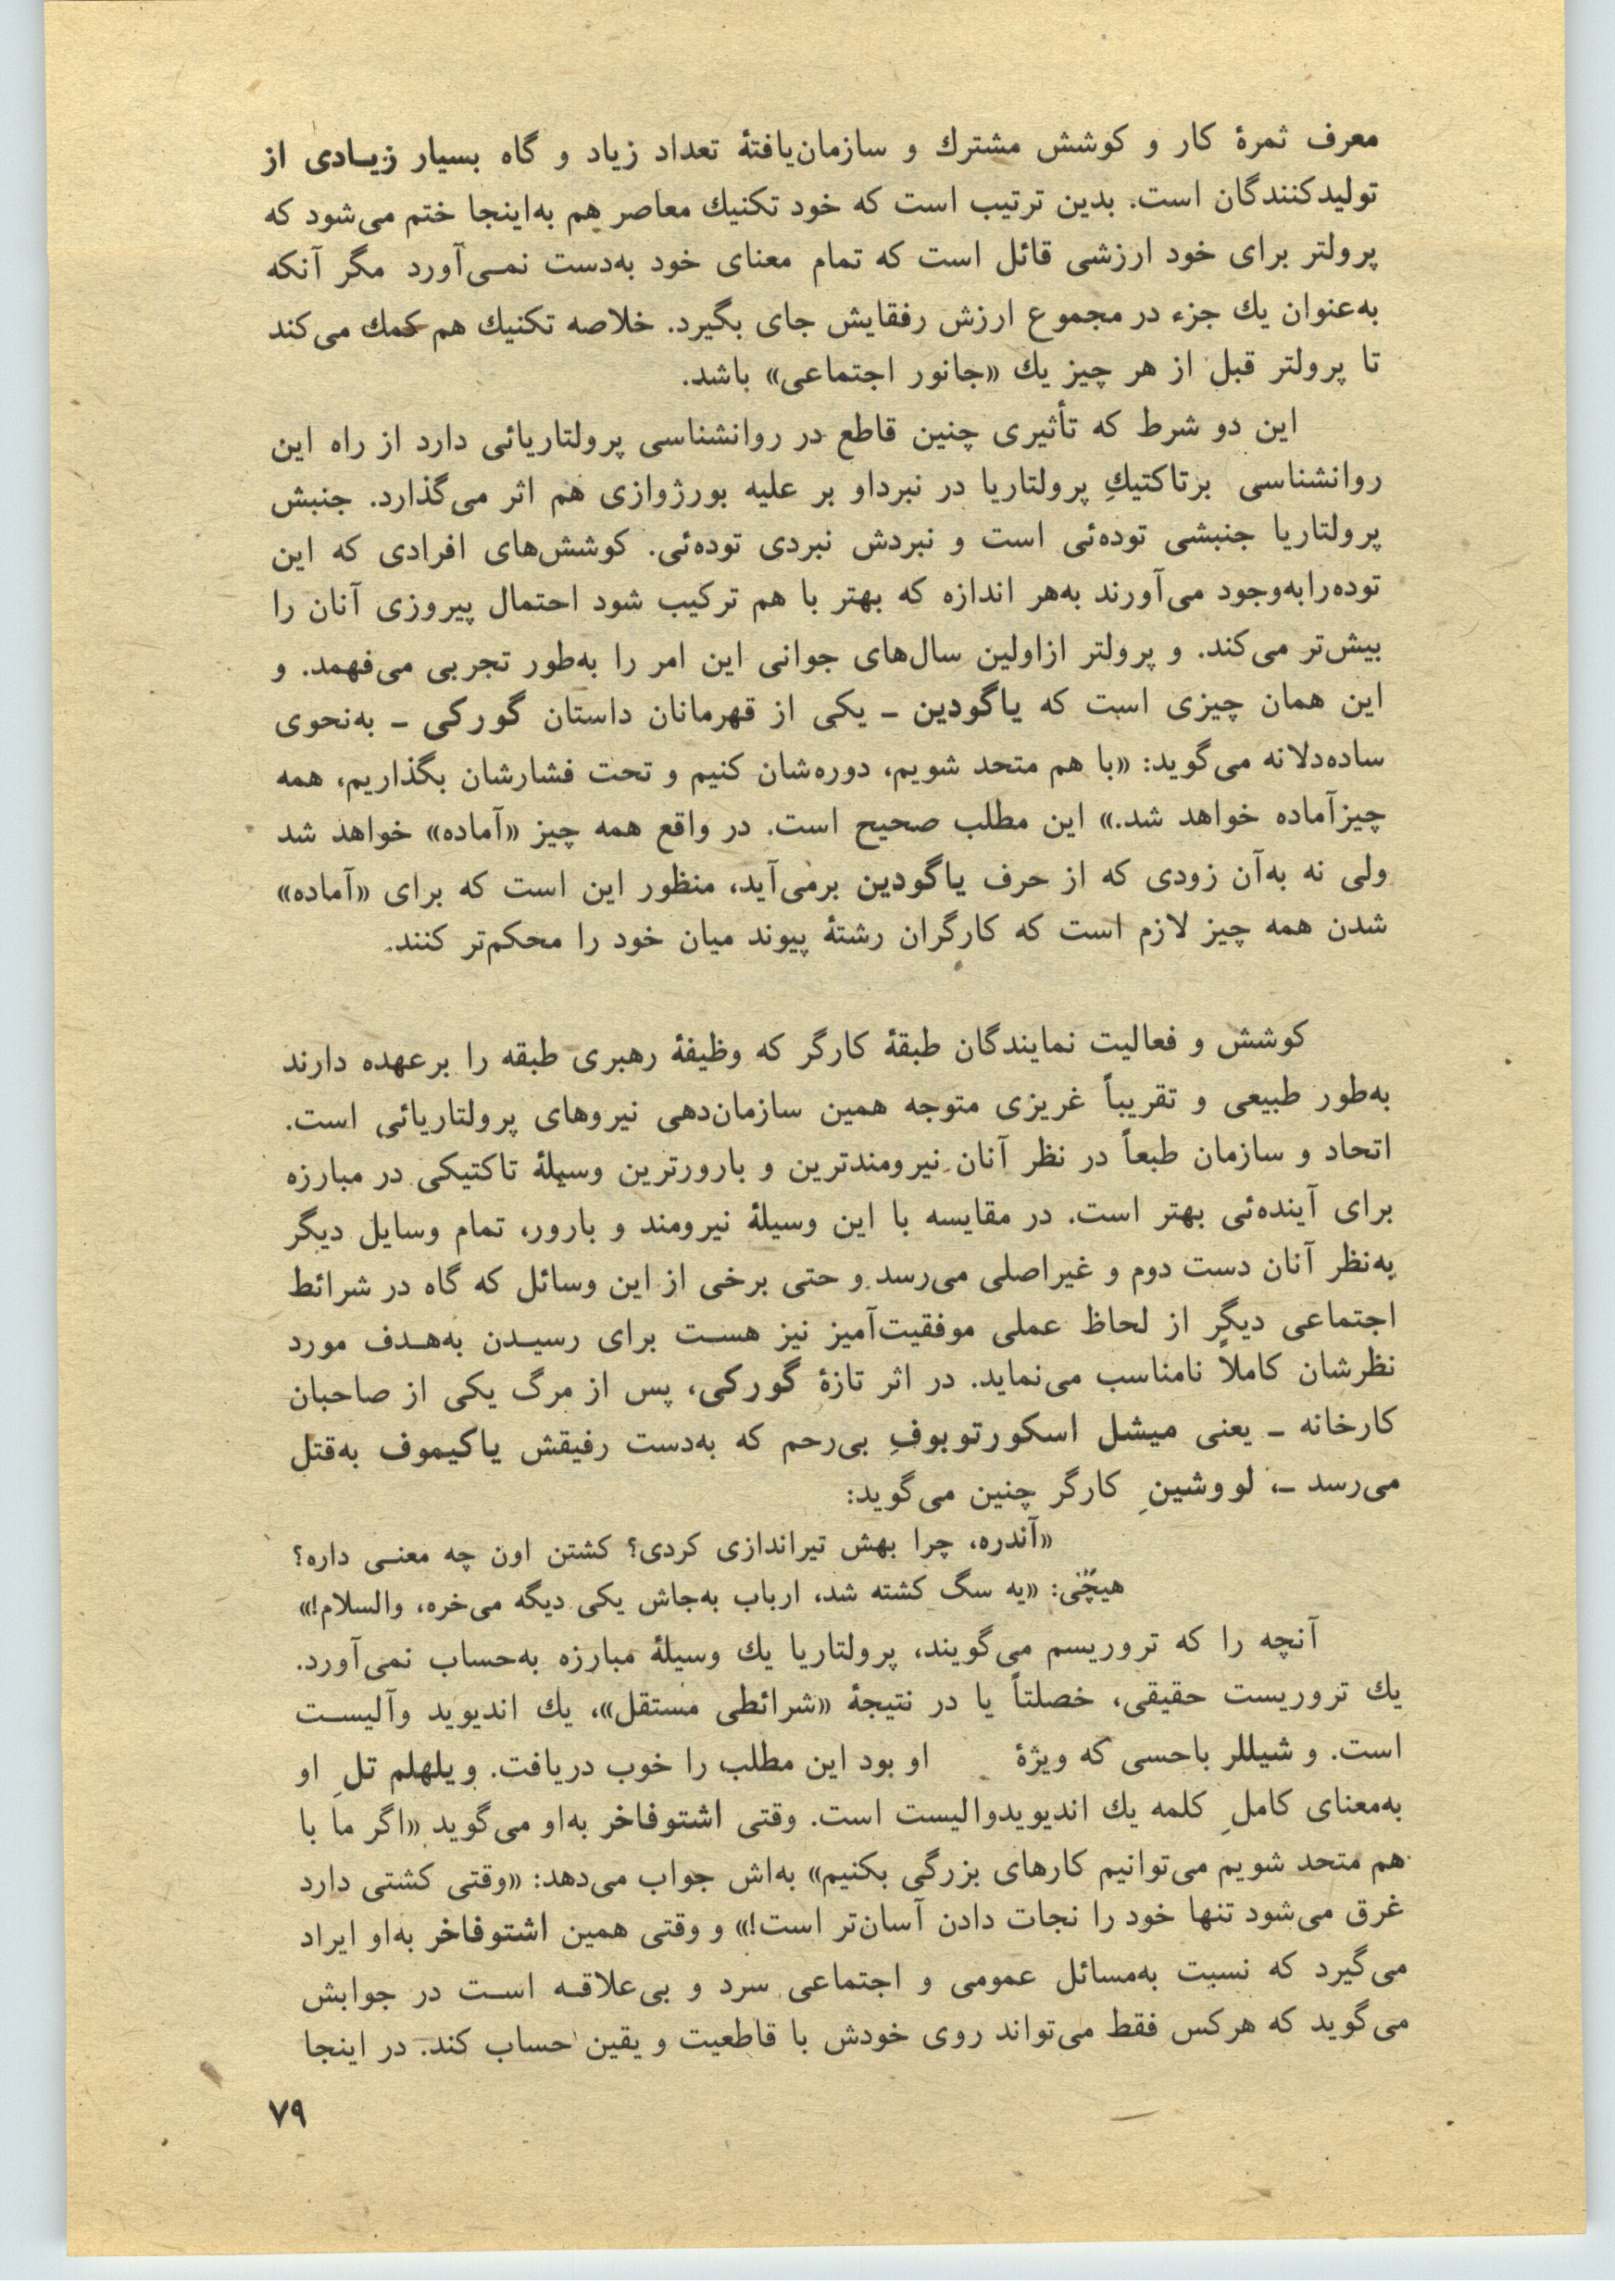 معرف ثمرۀ کار و کوشش مشترك و سازمان‌یافتۀ تعداد زیاد و گاه بسیار زیـادی از
تولیدکنندگان است. بدین ترتیب است که خود تکنیك معاصر هم به‌اینجا ختم می‌شود که
پرولتر برای خود ارزشی قائل است که تمام معنای خود به‌دست نمـی‌آورد مگر آنکه
به‌عنوان یك جزء در مجموع ارزش رفقایش جای بگیرد. خلاصه تکنیك هم کمك می‌کند
تا پرولتر قبل از هر چیز یك «جانور اجتماعی» باشد.
این دو شرط که تأثیری چنین قاطع در روانشناسی پرولتاریائی دارد از راه این
روانشناسی برتاکتیكِ پرولتاریا در نبرداو بر علیه بورژوازی هم اثر می‌گذارد. جنبش
پرولتاریا جنبشی توده‌ئی است و نبردش نبردی توده‌ئی. کوشش‌های افرادی که این
توده‌رابه‌وجود می‌آورند به‌هر اندازه که بهتر با هم ترکیب شود احتمال پیروزی آنان را
بیش‌تر می‌کند. و پرولتر ازاولین سال‌های جوانی این امر را به‌طور تجربی می‌فهمد. و
این همان چیزی است که یاگودین ـ یکی از قهرمانان داستان گورکی ـ به‌نحوی
ساده‌دلانه می‌گوید: «با هم متحد شویم، دوره‌شان کنیم و تحت فشارشان بگذاریم، همه
چیزآماده خواهد شد.» این مطلب صحیح است. در واقع همه چیز «آماده» خواهد شد
ولی نه به‌آن زودی که از حرف یاگودین برمی‌آید، منظور این است که برای «آماده»
شدن همه چیز لازم است که کارگران رشتۀ پیوند میان خود را محکم‌تر کنند.
کوشش و فعالیت نمایندگان طبقۀ کارگر که وظیفۀ رهبری طبقه را برعهده دارند
به‌طور طبیعی و تقریباً غریزی متوجه همین سازمان‌دهی نیروهای پرولتاریائی است.
اتحاد و سازمان طبعاً در نظر آنان نیرومندترین و بارورترین وسیلۀ تاکتیکی در مبارزه
برای آینده‌ئی بهتر است. در مقایسه با این وسیلۀ نیرومند و بارور، تمام وسایل دیگر
به‌نظر آنان دست دوم و غیراصلی می‌رسد و حتی برخی از این وسائل که گاه در شرائط
اجتماعی دیگر از لحاظ عملی موفقیت‌آمیز نیز هسـت برای رسیـدن به‌هـدف مورد
نظرشان کاملاً نامناسب می‌نماید. در اثر تازۀ گورکی، پس از مرگ یکی از صاحبان
کارخانه ـ یعنی میشل اسکورتوبوفِ بی‌رحم که به‌دست رفیقش یاکیموف به‌قتل
می‌رسد ـ، لووشینِ کارگر چنین می‌گوید:
«آندره، چرا بهش تیراندازی کردی؟ کشتن اون چه معنـی داره؟
هیچّی: «یه سگ کشته شد، ارباب به‌جاش یکی دیگه می‌خره، والسلام!»
آنچه را که تروریسم می‌گویند، پرولتاریا یك وسیلۀ مبارزه به‌حساب نمی‌آورد.
یك تروریست حقیقی، خصلتاً یا در نتیجۀ «شرائطی مستقل»، یك اندیوید وآلیسـت
است. و شیللر باحسی که ویژۀ او بود این مطلب را خوب دریافت. ویلهلم تلِ او
به‌معنای کاملِ کلمه یك اندیویدوالیست است. وقتی اشتوفاخر به‌او می‌گوید «اگر ما با
هم متحد شویم می‌توانیم کارهای بزرگی بکنیم» به‌اش جواب می‌دهد: «وقتی کشتی دارد
غرق می‌شود تنها خود را نجات دادن آسان‌تر است!» و وقتی همین اشتوفاخر به‌او ایراد
می‌گیرد که نسبت به‌مسائل عمومی و اجتماعی سرد و بی‌علاقـه اسـت در جوابش
می‌گوید که هرکس فقط می‌تواند روی خودش با قاطعیت و یقین حساب کند. در اینجا
۷۹